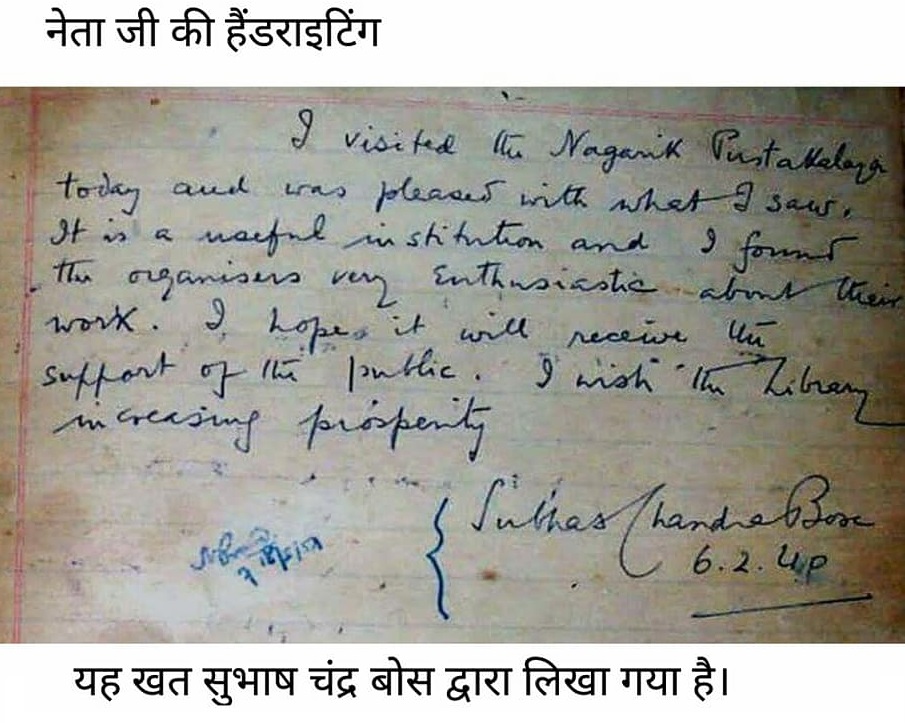 नेता जी की हैंडराइटिंग
I visited the Nagarik Pustakalaya
today and was pleased with what I saw.
It is a useful institution and I found
the organisers very enthusiastic about their
work. I hope it will receive the
support of the public. I wish the Library
increasing prosperity
Subhas Chandra Bose
6.2.40
यह खत सुभाष चंद्र बोस द्वारा लिखा गया है।